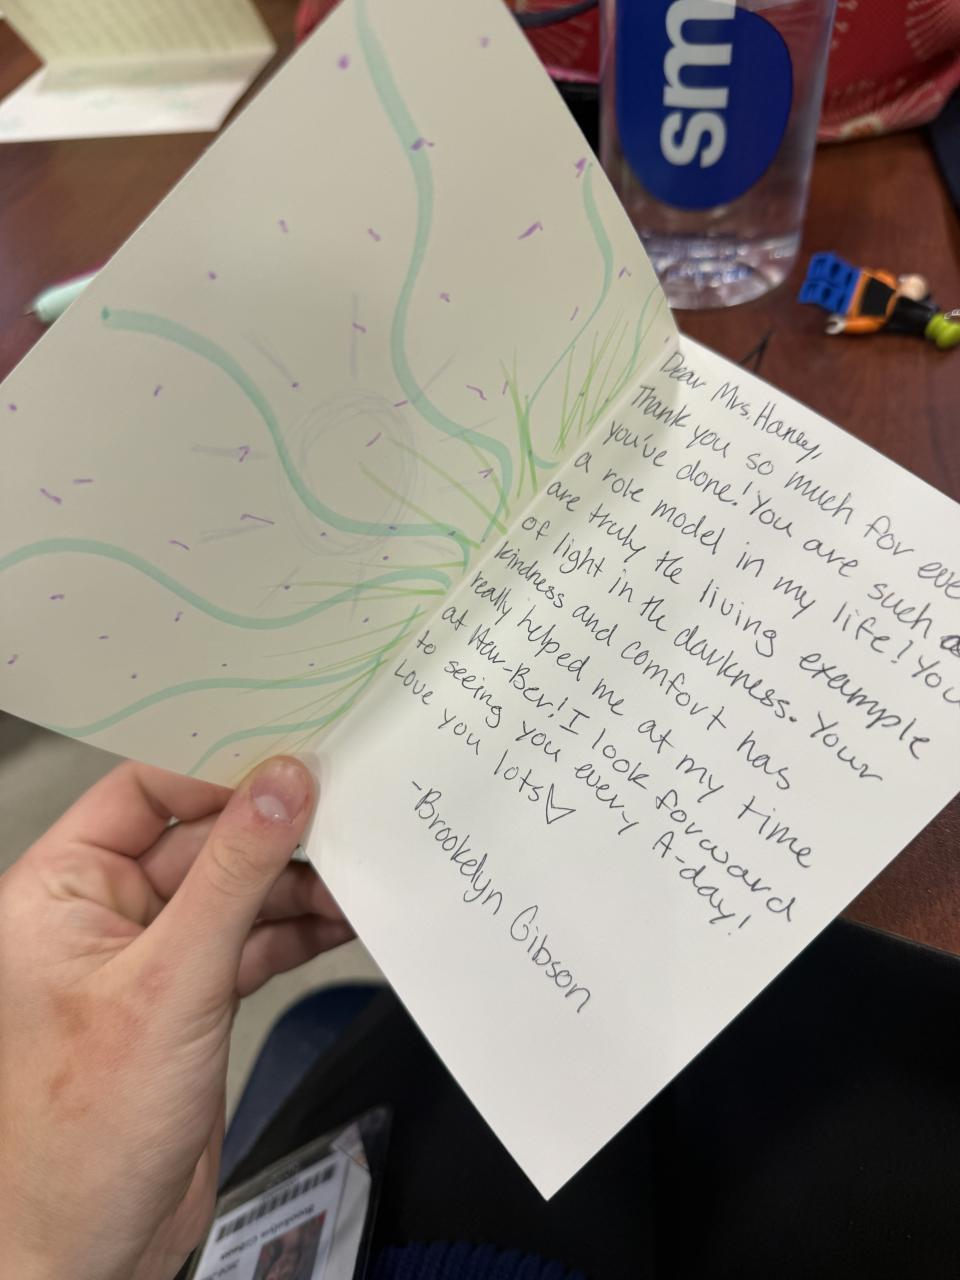 Dear Mrs. Haney,
Thank you so much for eve
you've done! You are such a
a role model in my life! You
are truly the living example
of light in the darkness. Your
kindness and comfort has
really helped me at my time
at Haw-Ber! I look forward
to seeing you every A-day!
Love you lots
-Brookelyn Gibson
sm
Brookelyn Gibson